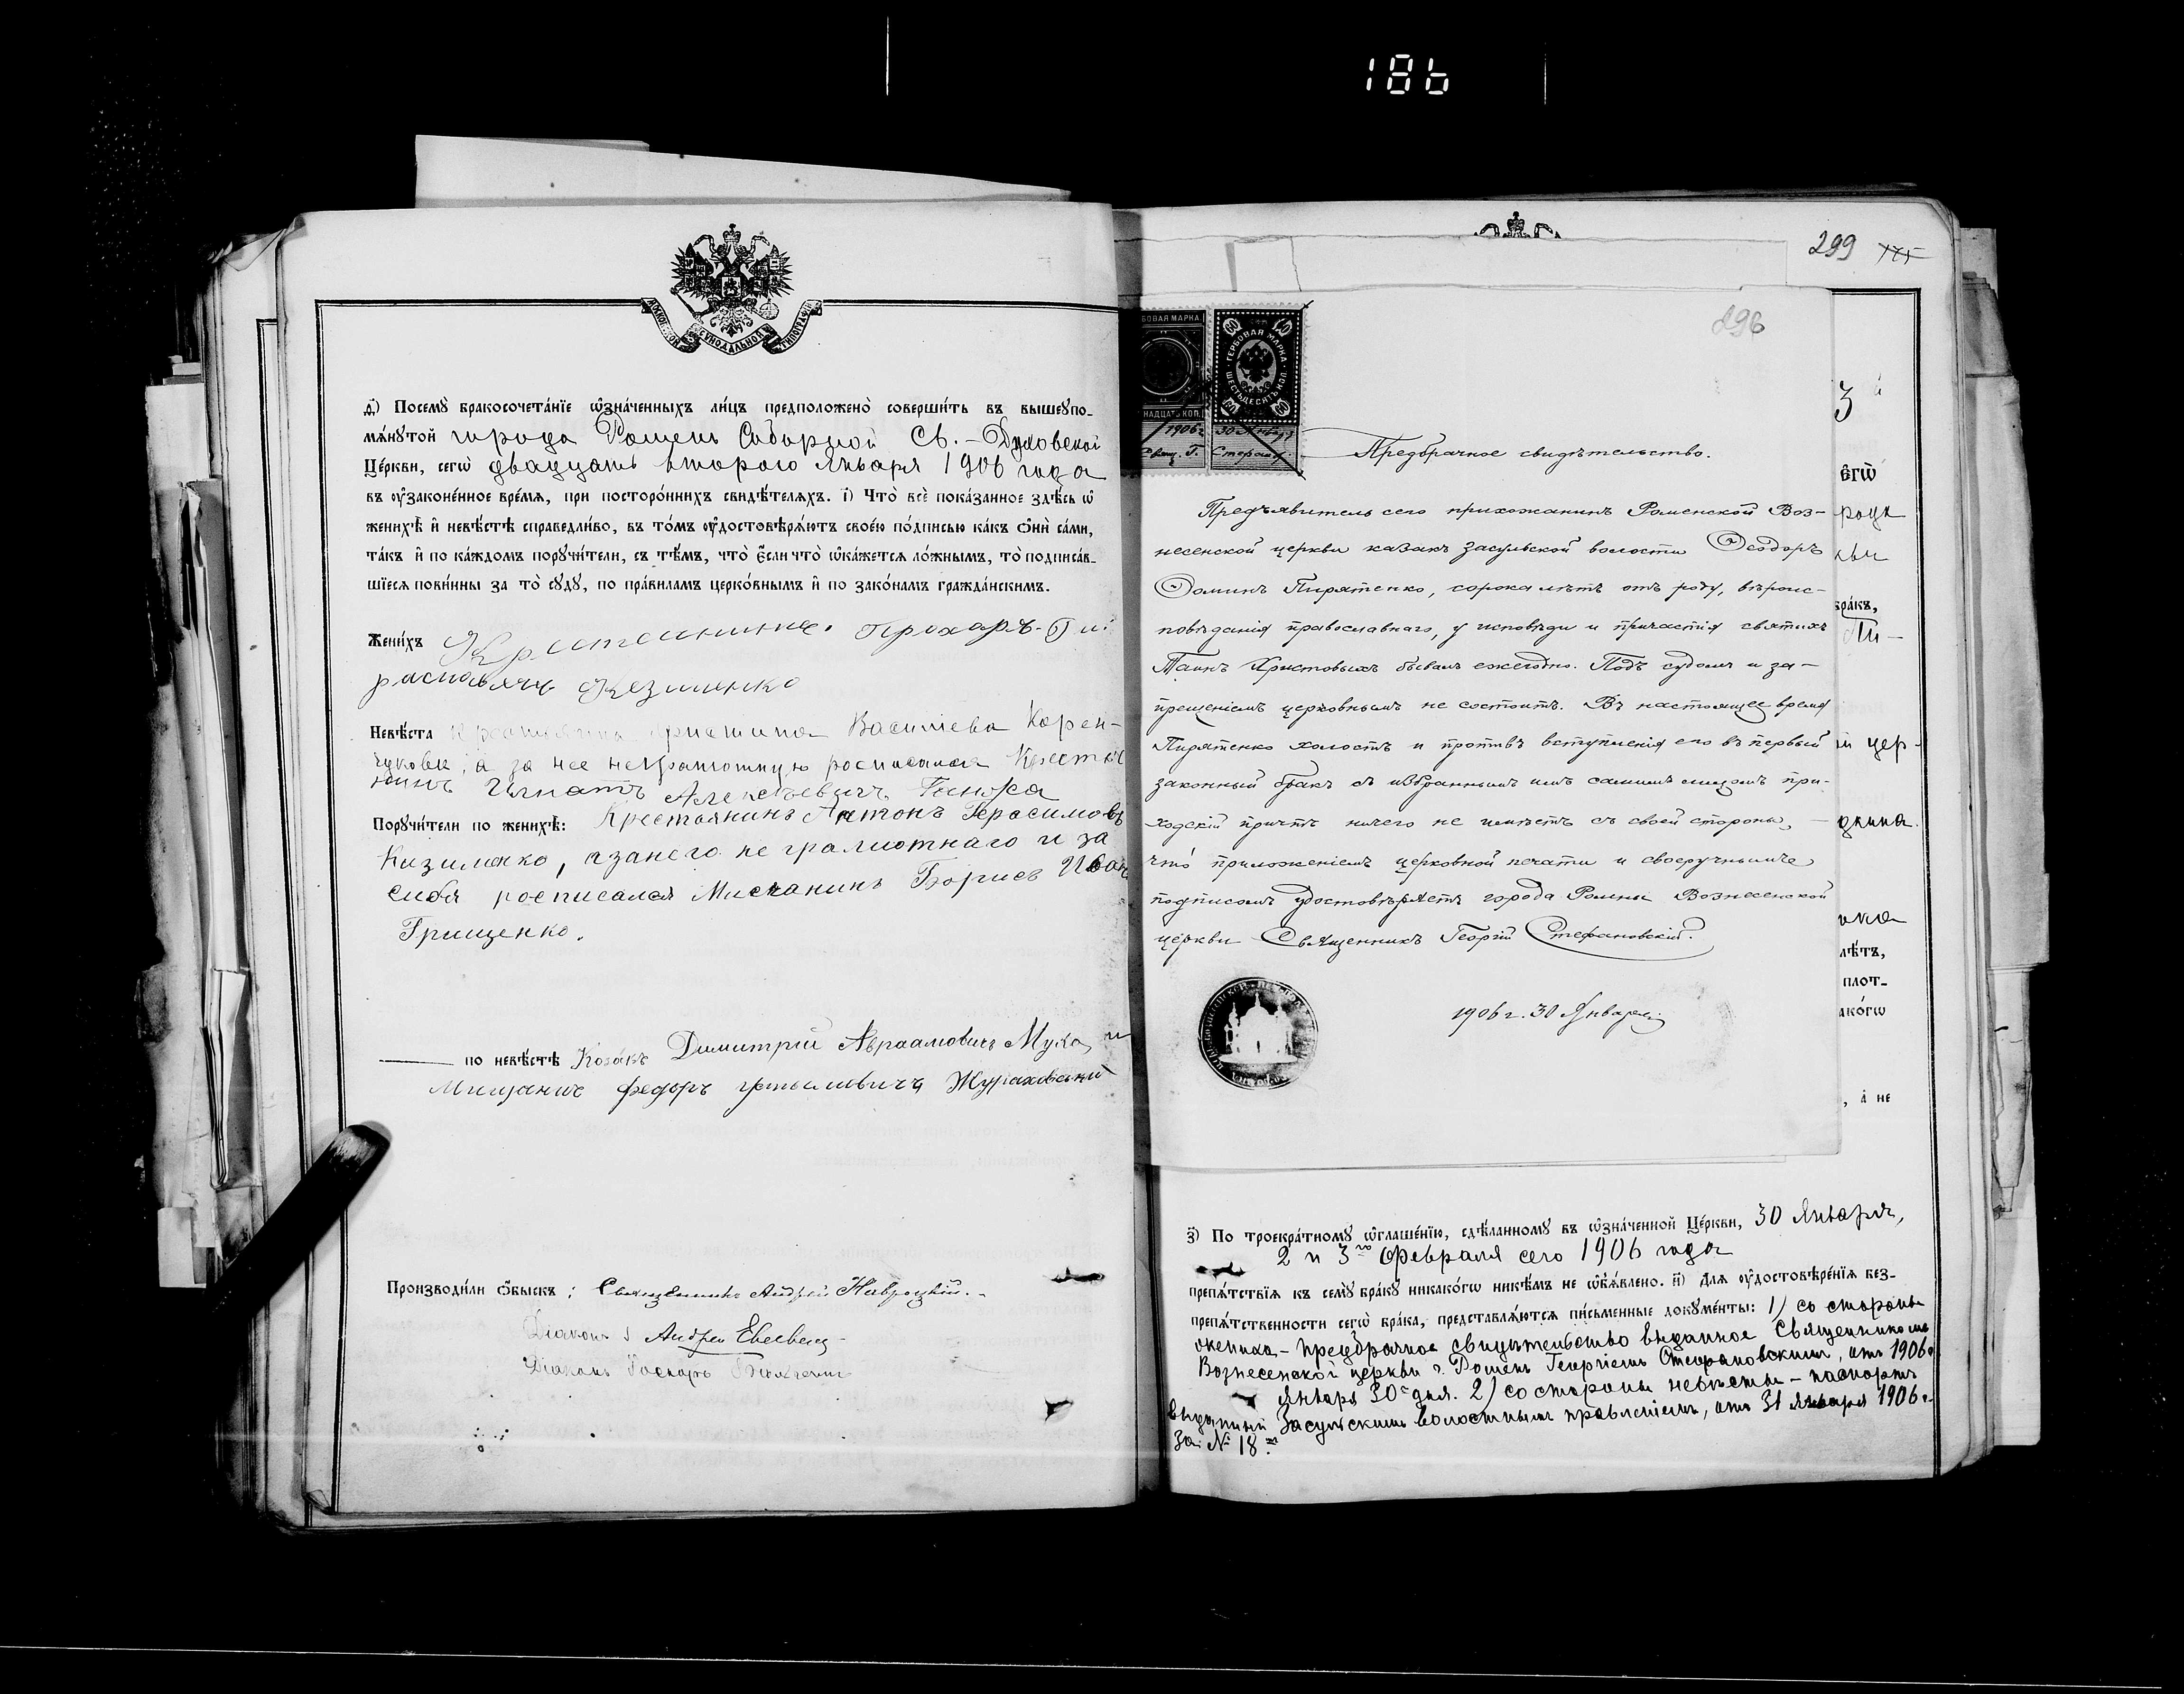 186
МОСКОВСКОЙ СѴНОДАЛЬНОЙ ТИПОГРАФІИ
д҃) Посемꙋ̀ бракосочета́нїе ѡ҆зна́ченныхъ ли́цъ предположено̀ соверши́ть въ вышеꙋпо-
мѧ́нꙋтой города Роменъ Соборной Св.-Духовской
Це́ркви, сегѡ̀ двадцать второго Января 1906 года
въ ᲂу҆зако́ненное вре́мѧ, при посторо́ннихъ свидѣ́телѧхъ. і҃) Что̀ всѐ пока́занное здѣ́сь ѡ҆
женихѣ̀ и҆ невѣ́стѣ справедли́во, въ то́мъ ᲂу҆достовѣрѧ́ютъ свое́ю по́дписью ка́къ ѻ҆нѝ са́ми,
та́къ и҆ по ка́ждомъ порꙋчи́тели, съ тѣ́мъ, что̀ є҆́сли что̀ ѡ҆ка́жетсѧ ло́жнымъ, то̀ подписа́в-
шїесѧ пови́нны за то̀ сꙋдꙋ̀, по пра́виламъ церко́внымъ и҆ по зако́намъ гражда́нскимъ.
Жени́хъ Крестьянинъ Прохоръ
Кезименко
Невѣ́ста Крестьянка Христина Васильева Карен-
а за нее неграмотную росписался Крестья
нинъ Игнатъ Алексѣевичъ
Порꙋчи́тели по женихѣ̀: Крестьянинъ Антонъ Герасимовъ
Кизименко, азанего не грамотнаго и за
себя росписался Мисчанинъ Борисъ Иван
Грищенко.
по невѣ́стѣ Козакъ Димитрій Авраамовичъ Муха, и
Мищанинъ Федоръ Жураховський
Производи́ли ѻ҆́быскъ: Священникъ Андрей Навроцкій.
Діаконъ Андрей
Діаконъ
299
175
296
ГЕРБОВАЯ МАРКА
ШЕСТЬДЕСЯТЪ КОП.
БОВАЯ МАРКА
НАДЦАТЬ КОП.
1906 г. 30 Января
Свящ. Г. Стефанов.
Предбрачное свидѣтельство.
Предъявитель сего прихожанинъ Роменской Воз-
несенской церкви казакъ Засульской волости Ѳеодоръ
Ѳоминъ Пирятенко, сорока лѣтъ отъ роду, вѣроис-
повѣданія православнаго, у исповѣди и причастія святыхъ
Таинъ Христовыхъ бывалъ ежегодно. Подъ судомъ и за-
прещеніемъ церковнымъ не состоитъ. Въ настоящее время
Пирятенко холостъ и противъ вступленія его въ первый
законный бракъ съ избраннымъ имъ самимъ лицомъ при-
ходскій причтъ ничего не имѣетъ съ своей стороны, —
что приложеніемъ церковной печати и своеручнымъ
подписомъ удостовѣряетъ города Ромны Вознесенской
церкви Священникъ Георгій Стефановскій.
1906 г. 30 Января
3
є҆гѡ̀
бра́къ,
Пи-
й цер-
лѣ́тъ,
плот-
ако́гѡ
, а҆ не
з҃) По троекра́тномꙋ ѡ҆глаше́нїю, сдѣ́ланномꙋ въ ѡ҆зна́ченной Це́ркви, 30 Января,
2 и 3го Февраля сего 1906 года
препѧ́тствїѧ къ семꙋ̀ бра́кꙋ никако́гѡ никѣ́мъ не ѡ҆б̾ѧ́влено. и҃) Длѧ ᲂу҆достовѣре́нїѧ без-
препѧ́тственности сегѡ̀ бра́ка, представлѧ́ютсѧ пи́сьменные докꙋме́нты: 1) со стороны
жениха – предбрачное свидѣтельство выданное Священникомъ
Вознесенской церкви г. Роменъ Георгіемъ Стефановскимъ, отъ 1906 г.
Января 30го дня. 2) со стороны невѣсты – паспортъ
выданный Засульскимъ волостнымъ правленіемъ, отъ 31 Января 1906 г.
за № 18м